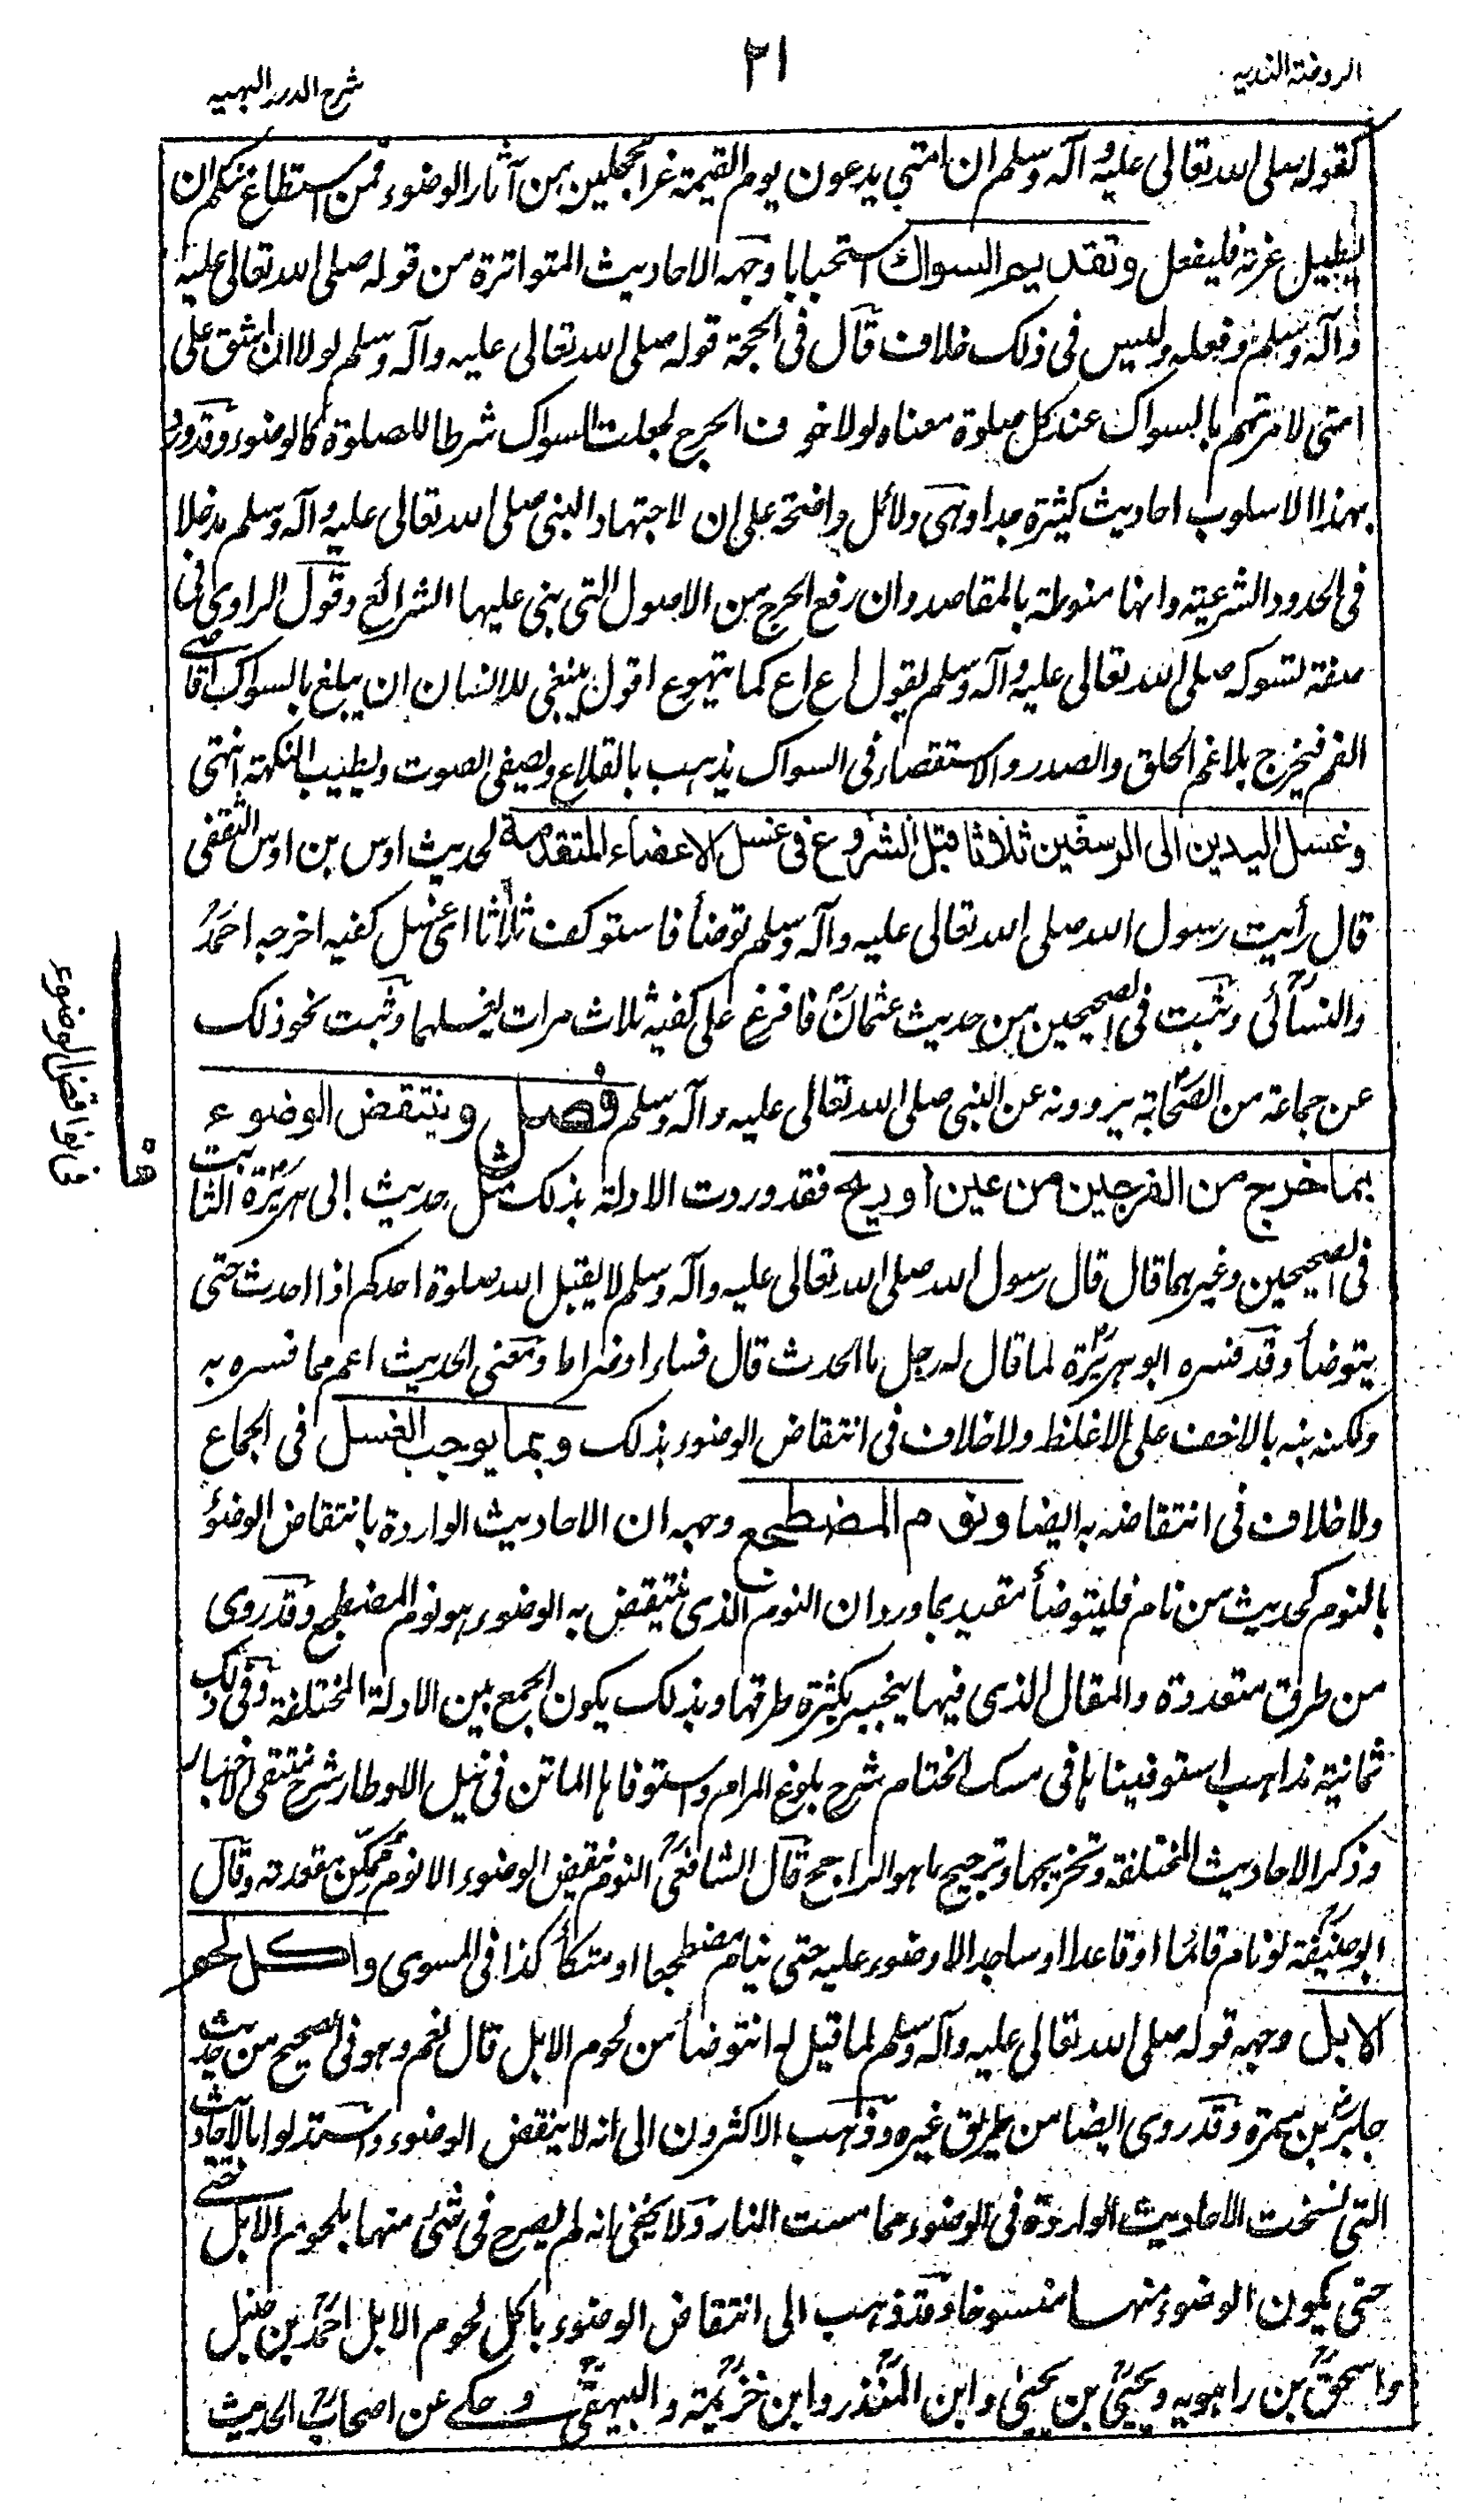 الروضة الندية
٢١
شرح الدرر البهية
كقوله صلى الله تعالى عليه وآله وسلم ان امتي يدعون يوم القيمة غرا محجلين من آثار الوضوء فمن استطاع منكم ان
يطيل غرته فليفعل وتقديم السواك استحبابا وجهه الاحاديث المتواترة من قوله صلى الله تعالى عليه
وآله وسلم وفعله وليس في ذلك خلاف قال في الحجة قوله صلى الله تعالى عليه وآله وسلم لولا ان اشق على
امتي لامرتهم بالسواك عند كل صلوة معناه لولا خوف الحرج لجعلت السواك شرطا للصلوة كالوضوء وقد ورد
بهذا الاسلوب احاديث كثيرة جدا وهى دلائل واضحة على ان لاجتهاد النبي صلى الله تعالى عليه وآله وسلم مدخلا
في الحدود الشرعية وانها منوطة بالمقاصد وان رفع الحرج من الاصول التي بني عليها الشرائع وقول الراوي في
صفة تسوكه صلى الله تعالى عليه وآله وسلم يقول اع اع كما يتهوع اقول ينبغي للانسان ان يبلغ بالسواك اقاصي
الفم فيخرج بلاغم الحلق والصدر والاستقصاء في السواك يذهب بالقلاع ويصفي الصوت ويطيب النكهة انتهى
وغسل اليدين الى الرسغين ثلاثا قبل الشروع في غسل الاعضاء المتقدمة لحديث اوس بن اوس الثقفي
قال رأيت رسول الله صلى الله تعالى عليه وآله وسلم توضأ فاستوكف ثلاثا اي غسل كفيه اخرجه احمد
والنسائي وثبت في الصحيحين من حديث عثمان فافرغ على كفيه ثلاث مرات يغسلهما وثبت نحو ذلك
عن جماعة من الصحابة يروونه عن النبي صلى الله تعالى عليه وآله وسلم فصل وينتقض الوضوء
بما خرج من الفرجين من عين او ريح فقد وردت الادلة بذلك مثل حديث ابي هريرة الثابت
في الصحيحين وغيرهما قال قال رسول الله صلى الله تعالى عليه وآله وسلم لا يقبل الله صلوة احدكم اذا احدث حتى
يتوضأ وقد فسره ابو هريرة لما قال له رجل ما الحدث قال فساء او ضراط ومعنى الحديث اعم مما فسره به
ولكنه نبه بالاخف على الاغلظ ولا خلاف في انتقاض الوضوء بذلك وبما يوجب الغسل في الجماع
ولا خلاف في انتقاضه به ايضا ونوم المضطجع وجهه ان الاحاديث الواردة بانتقاض الوضوء
بالنوم كحديث من نام فليتوضأ مقيد بما ورد ان النوم الذى ينتقض به الوضوء هو نوم المضطجع وقد روى
من طرق متعددة والمقال الذى فيها ينجبر بكثرة طرقها وبذلك يكون الجمع بين الادلة المختلفة وفى ذلك
ثمانية مذاهب استوفيناها في مسك الختام شرح بلوغ المرام واستوفاها الماتن في نيل الاوطار شرح منتقى الاخبار
وذكر الاحاديث المختلفة وتخريجها وترجيح ما هو الراجح قال الشافعي النوم ينقض الوضوء الا نوم ممكن مقعدته وقال
ابو حنيفة لو نام قائما او قاعدا او ساجدا لا وضوء عليه حتى ينام مضطجعا او متكأ كذا في المسوى واكل لحم
الابل وجهه قوله صلى الله تعالى عليه وآله وسلم لما قيل له انتوضأ من لحوم الابل قال نعم وهو في الصحيح من حديث
جابر بن سمرة وقد روى ايضا من طريق غيره وذهب الاكثرون الى انه لا ينقض الوضوء واستدلوا بالاحاديث
التي نسخت الاحاديث الواردة في الوضوء مما مست النار ولا يخفى انه لم يصرح في شئ منها بلحوم الابل
حتى يكون الوضوء منها منسوخا وقد ذهب الى انتقاض الوضوء باكل لحوم الابل احمد بن حنبل
واسحق بن راهويه ويحيى بن يحيى وابن المنذر وابن خزيمة والبيهقي وحكي عن اصحاب الحديث
في نواقض الوضوء